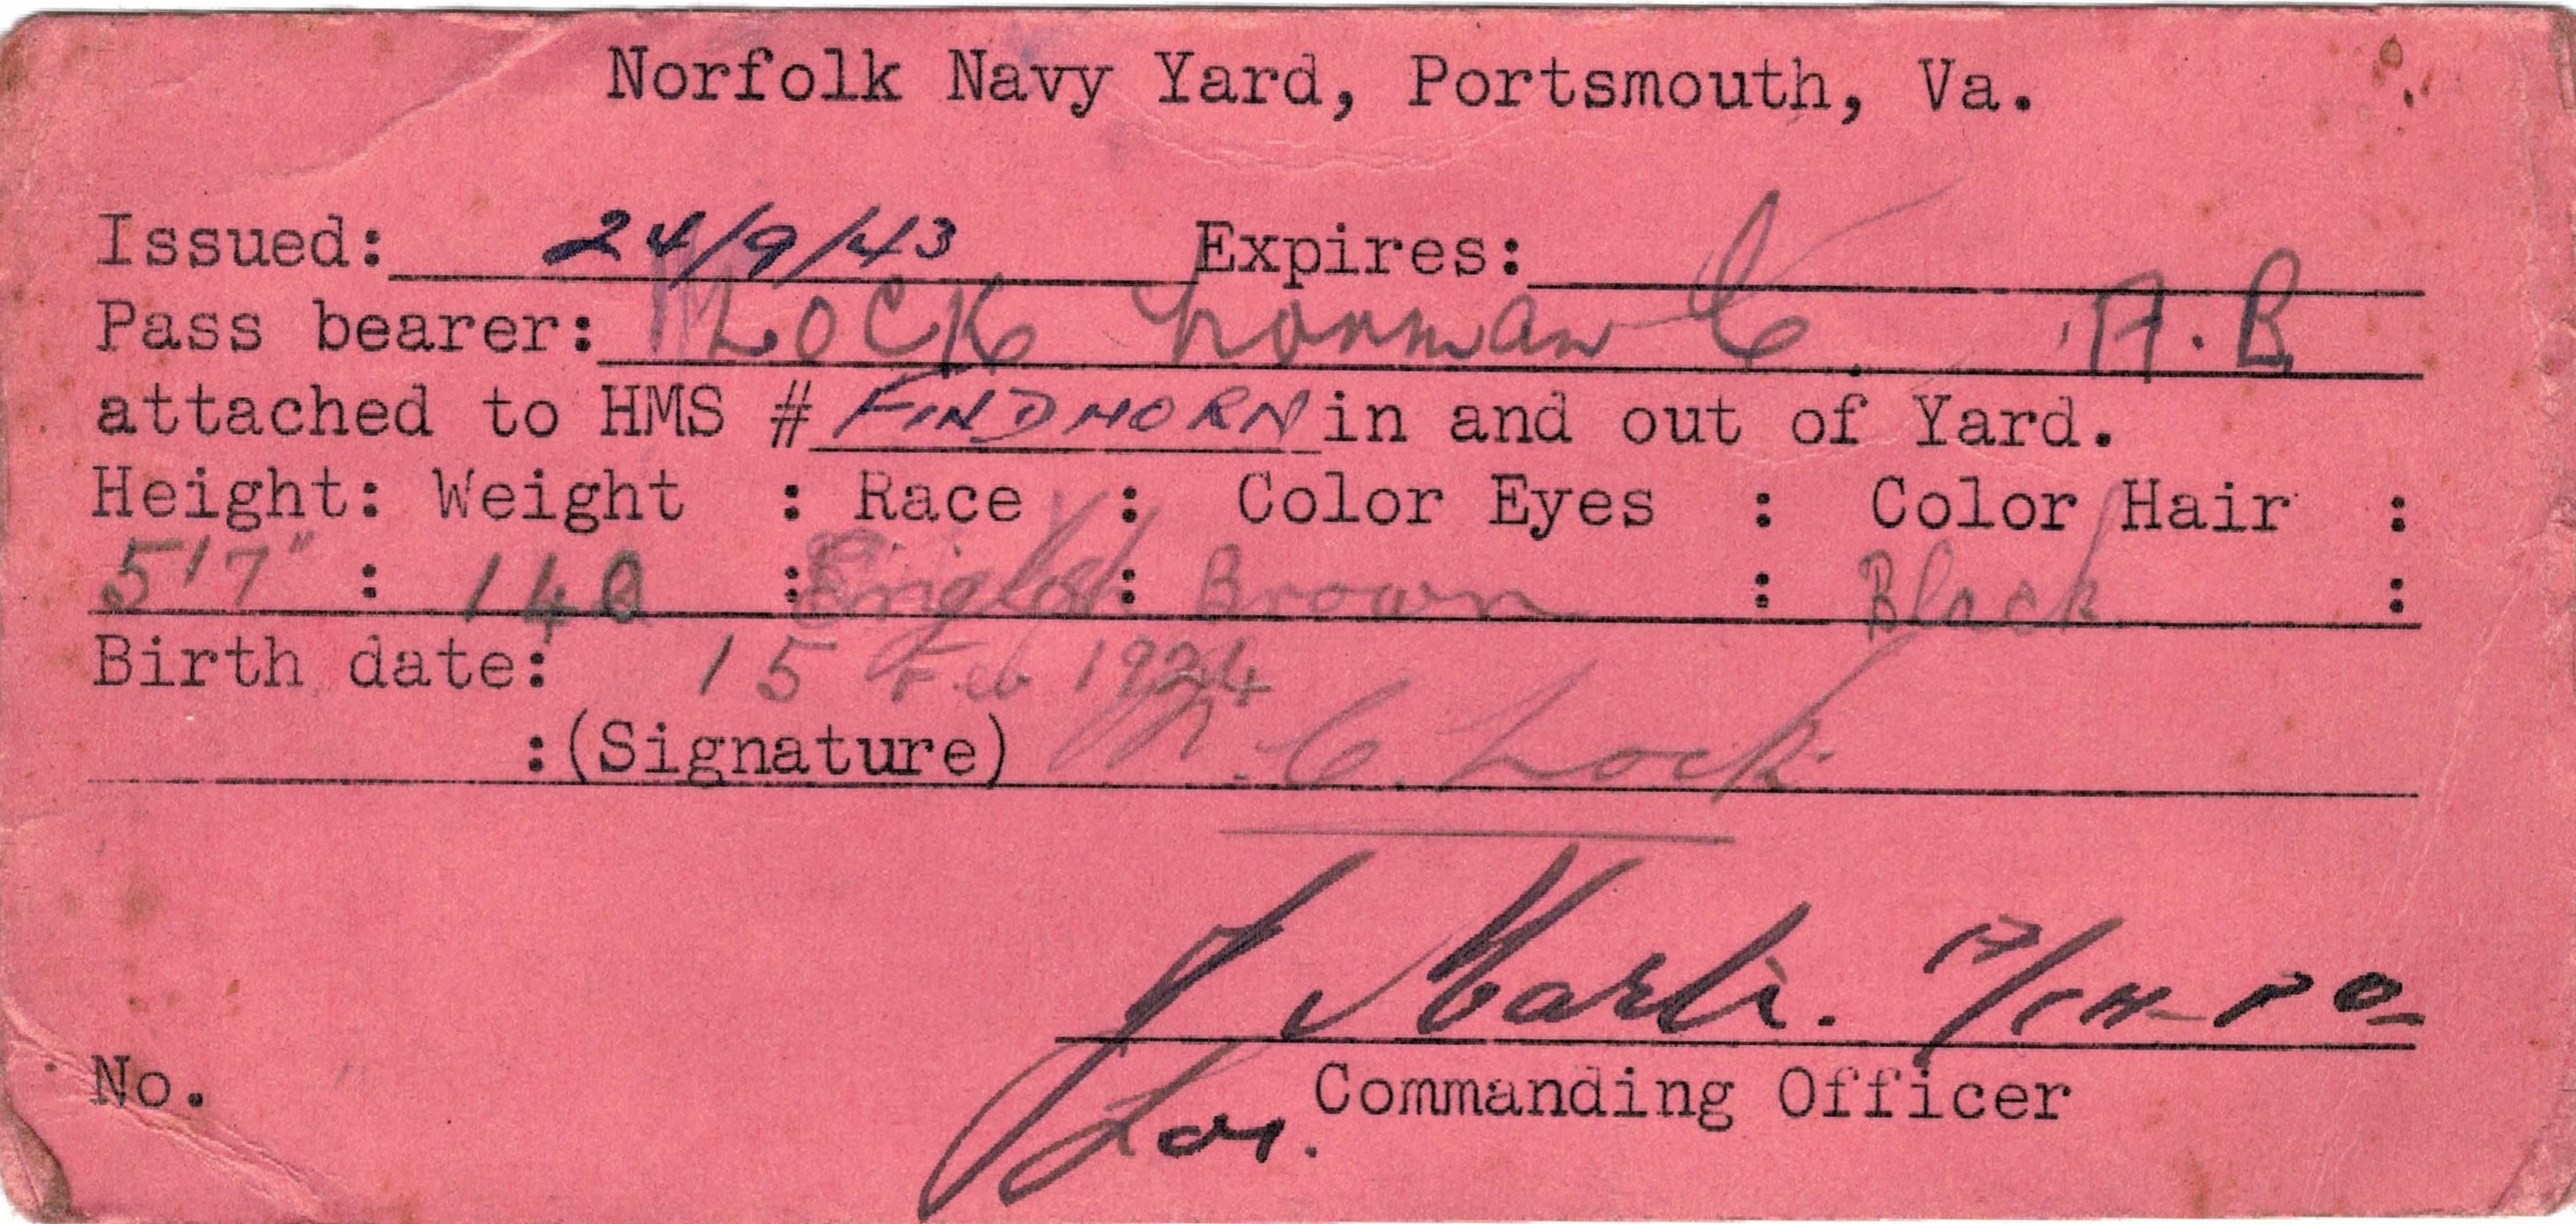 Norfolk Navy Yard, Portsmouth, Va.
Issued: 24/9/43 Expires:
Pass bearer: LOCK Norman C. A.B
attached to HMS # FINDHORN in and out of Yard.
Height: Weight : Race : Color Eyes : Color Hair :
5'7" : 140 : English : Brown : Black :
Birth date: 15 Feb 1924
:(Signature) N. C. Lock
J
Commanding Officer
No. for.